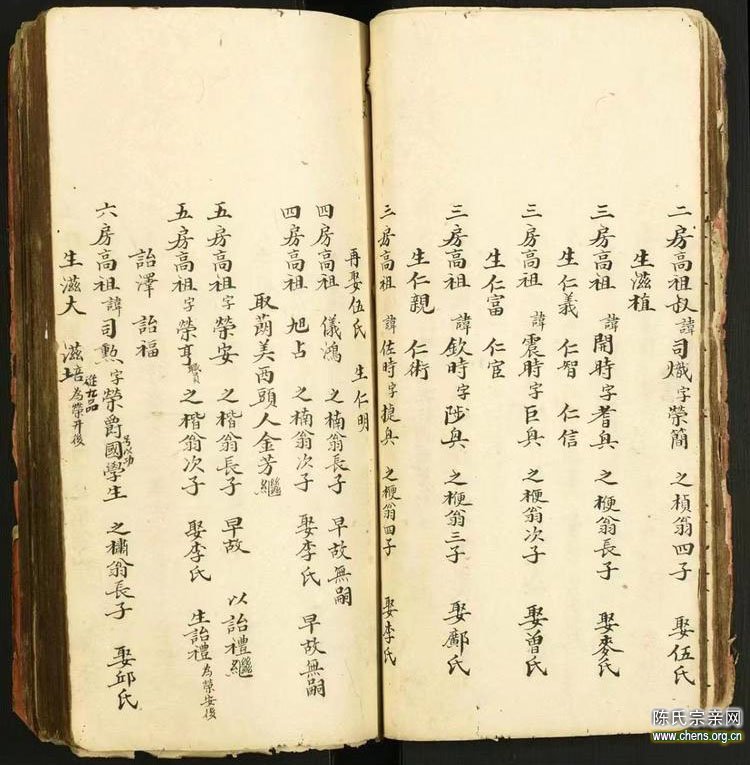 二房高祖叔諱司熾字榮簡 之楨翁四子 娶伍氏
生滋植
三房高祖 諱開時字耆與 之楩翁長子 娶麥氏
生仁義 仁智 仁信
三房高祖 諱震時字巨與 之楩翁次子 娶曾氏
生仁富 仁宦
三房高祖 諱欽時字陟與 之楩翁三子 娶鄺氏
生仁親 仁術
三房高祖 諱佐時字捷與 之楩翁四子 娶李氏
再娶伍氏 生仁明
四房高祖 儀鴻 之楠翁長子 早故無嗣
四房高祖 旭占 之楠翁次子 娶李氏 早故無嗣
取蓢美西頭人金芳繼
五房高祖字榮安 之楷翁長子 早故 以詒禮繼
五房高祖字榮耳 之楷翁次子 娶李氏 生詒禮為榮安後
詒澤 詒福
六房高祖諱司勲字榮爵國學生 之橚翁長子 娶邱氏
生滋大 滋培為榮升後
陈氏宗亲网
www.chens.org.cn